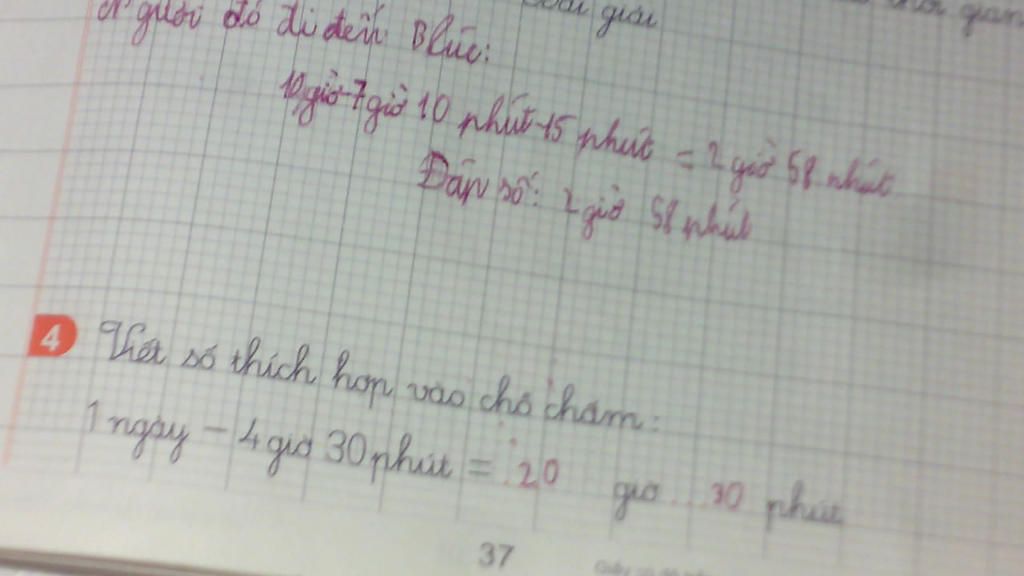 giải gian
Người đó đi đến B lúc:
10 giờ - 7 giờ 10 phút - 15 phút = 2 giờ 58 phút
Đáp số: 2 giờ 58 phút
4 Viết số thích hợp vào chỗ chấm:
1 ngày - 4 giờ 30 phút = 20 giờ ... 30 phút
37